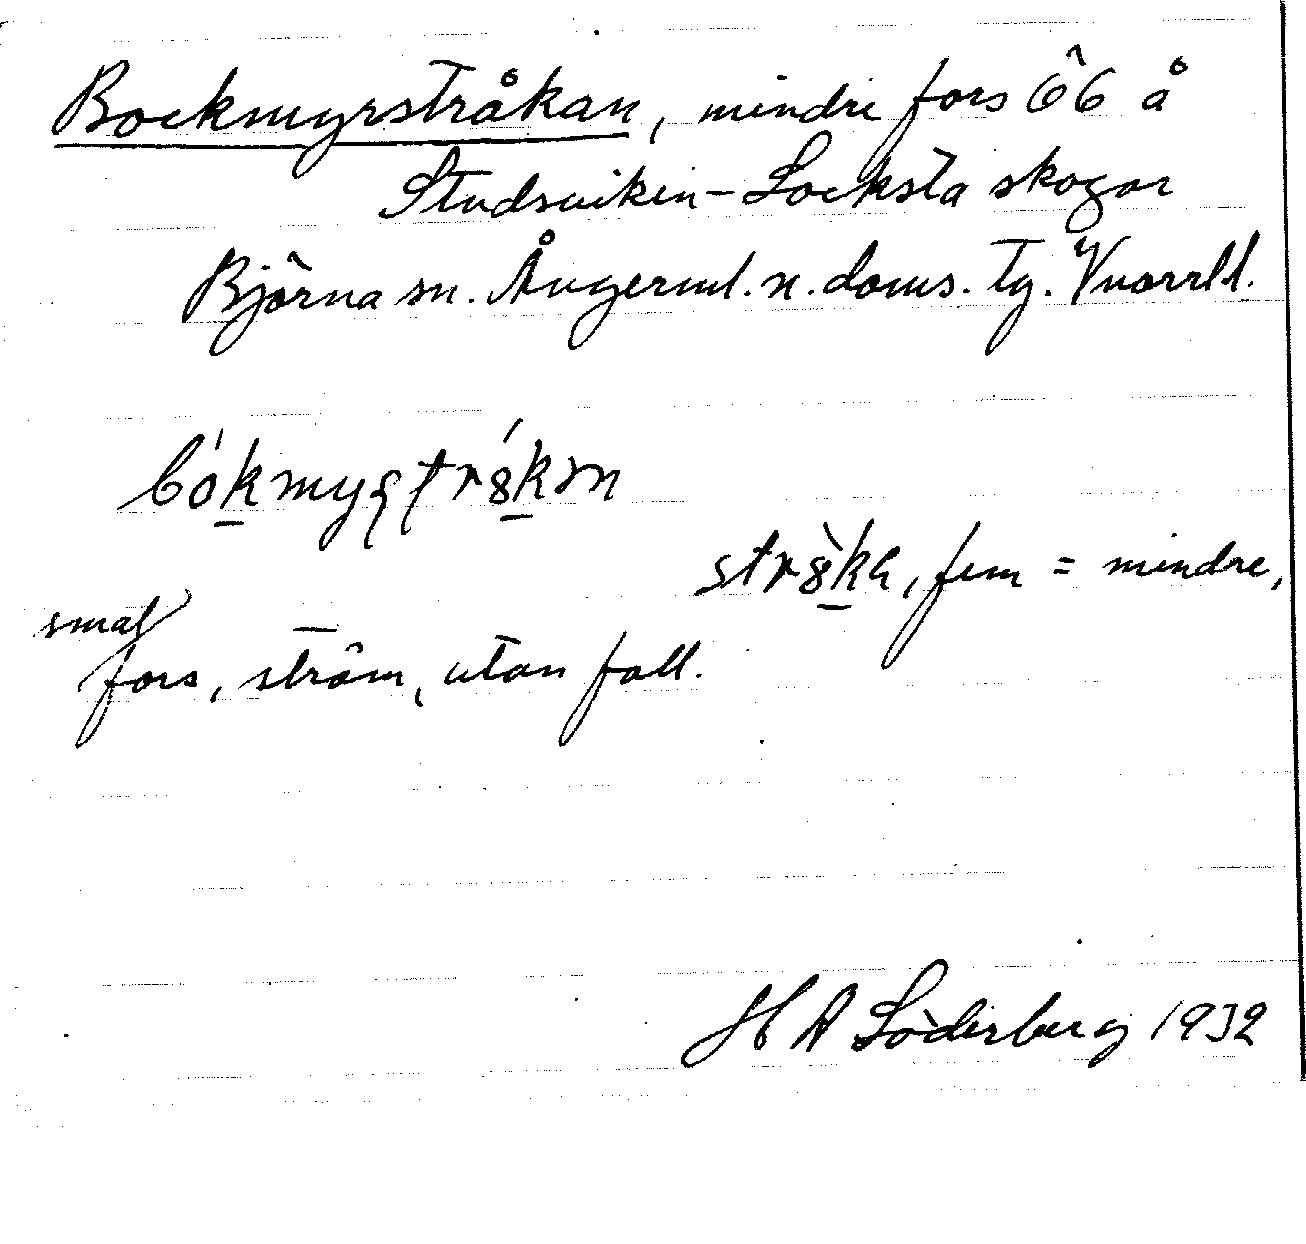 Bockmyrstråkan, mindre fors ö6 å
Studsviken-Locksta skogar
Björna sn. Ångerml. n. doms. tg. Vnorrl l.
bókmyʂtrókɘn
stròka, fem = mindre,
smal
fors, ström, utan fall.
H A Söderberg 1932